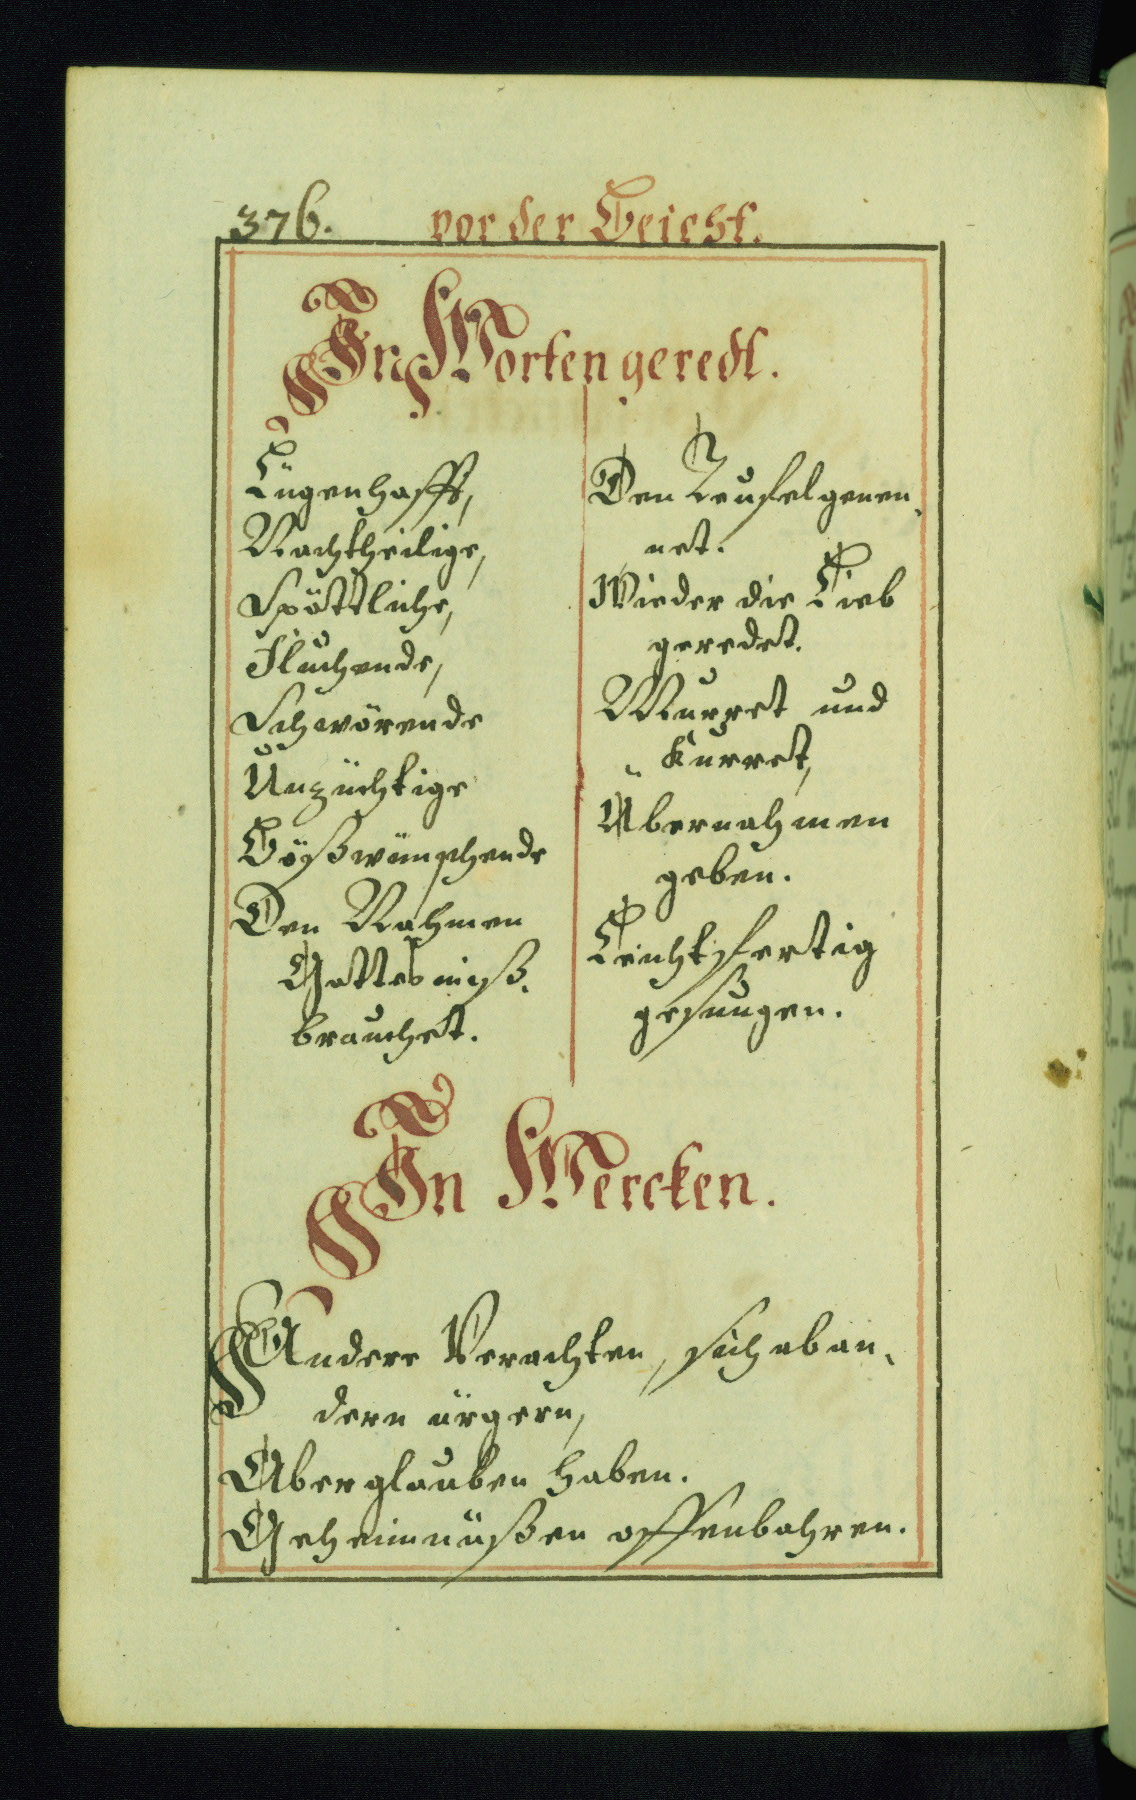 376. vor der Beicht.
In Worten geredt.
Lügenhafft,
Nachtheilige,
Spöttliche,
Fluchende,
Schwörende
Unzüchtige
Bößwünschende
Den Nahmen
Gottes miß-
brauchet.
Den Teufel genen-
net.
Wieder die Lieb
geredet.
Murret und
Kurret,
Übernahmen
geben.
Leichtfertig
gesungen.
In Wercken.
Andere Verachten, sich ab an-
dern ärgern,
Aberglauben haben.
Geheimnüßen offenbahren.